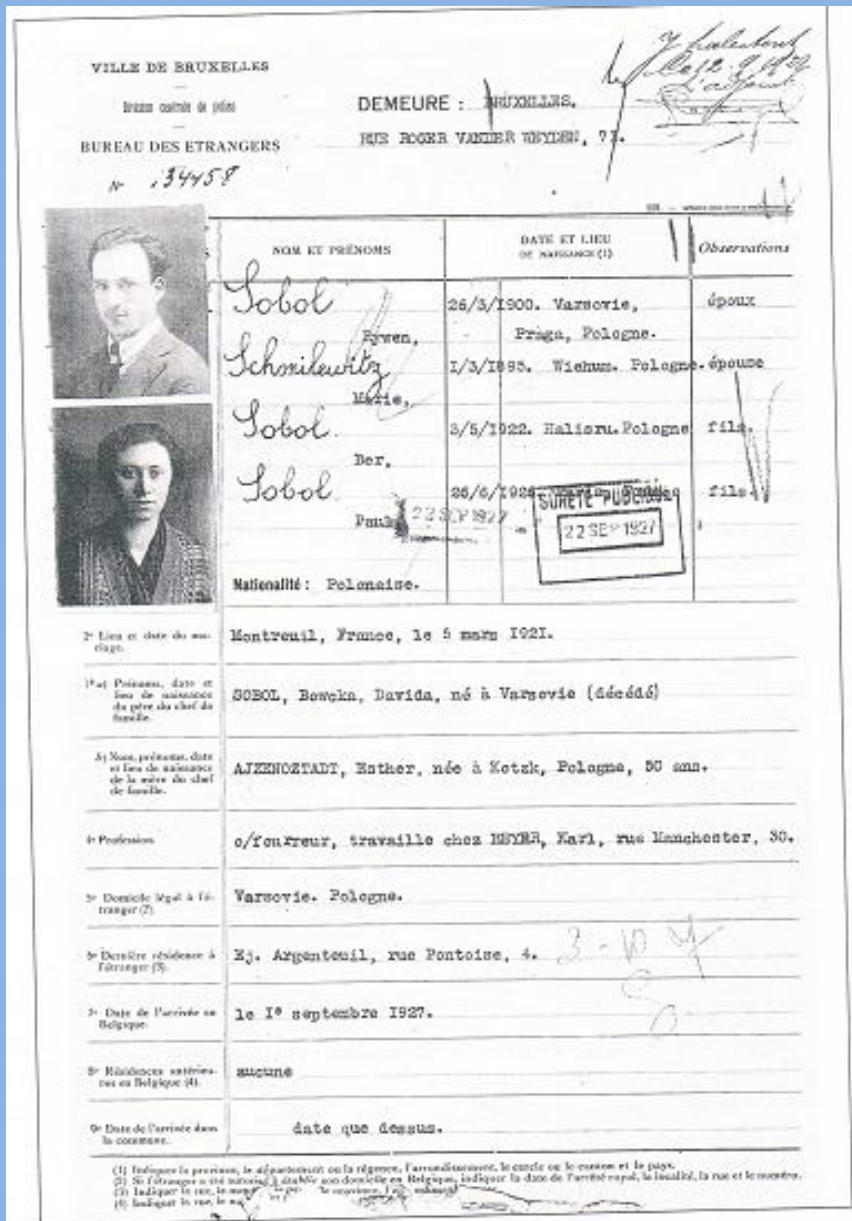 VILLE DE BRUXELLES
Division centrale de police
BUREAU DES ETRANGERS
N° 34458
DEMEURE : BRUXELLES.
RUE ROGER VANDER WEYDEN, 71.
NOM ET PRÉNOMS
DATE ET LIEU DE NAISSANCE (1)
Observations
Sobol 26/3/1900. Varsovie, époux
Praga, Pologne.
Schmilewitz 1/3/1895. Pologne. épouse
Marie,
Sobol. 3/5/1922. Pologne fils.
Ber,
Sobol 26/6/1926. fils.
Paul 22 SEP 1927
SURETE PUBLIQUE
22 SEP 1927
Nationalité : Polonaise.
2° Lieu et date du mariage. Montreuil, France, le 5 mars 1921.
a) Prénoms, date et lieu de naissance du père du chef de famille. SOBOL, Davida, né à Varsovie (décédé)
b) Nom, prénoms, date et lieu de naissance de la mère du chef de famille. AJZENOZTADT, Esther, née à Kotzk, Pologne, 50 ans.
4° Profession. o/fourreur, travaille chez Karl, rue Manchester, 30.
5° Domicile légal à l'étranger (2). Varsovie. Pologne.
6° Dernière résidence à l'étranger (3). Ej. Argenteuil, rue Pontoise, 4.
7° Date de l'arrivée en Belgique. le 1° septembre 1927.
8° Résidences antérieures en Belgique (4). aucune
9° Date de l'arrivée dans la commune. date que dessus.
(1) Indiquer la province, le département ou la régence, l'arrondissement, le cercle ou le canton et le pays.
(2) Si l'étranger a été autorisé à établir son domicile en Belgique, indiquer la date de l'arrêté royal, la localité, la rue et le numéro.
(3) Indiquer la rue, le
(4) Indiquer la rue, le